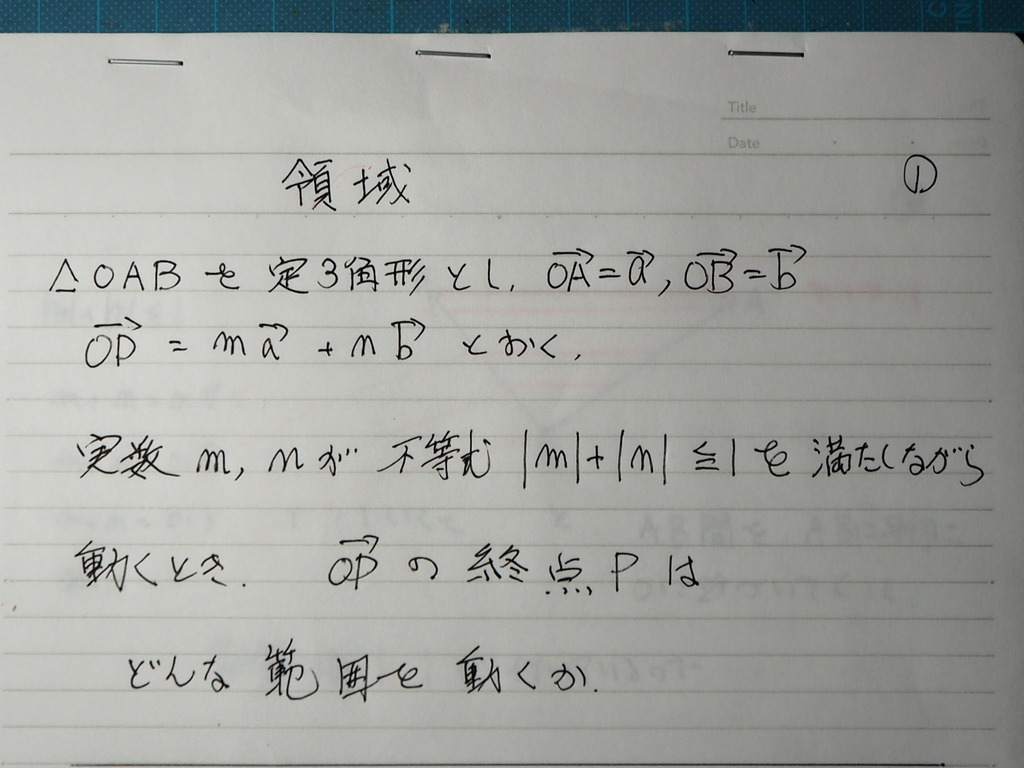 Title
Date
領域 ①
△OABを定3角形とし, \overrightarrow{OA}=\vec{a}, \overrightarrow{OB}=\vec{b}
\overrightarrow{OP} = m\vec{a} + n\vec{b} とおく.
実数 m, n が 不等式 |m|+|n| ≦1 を 満たしながら
動くとき. \overrightarrow{OP} の 終点 P は
どんな 範囲を 動くか.